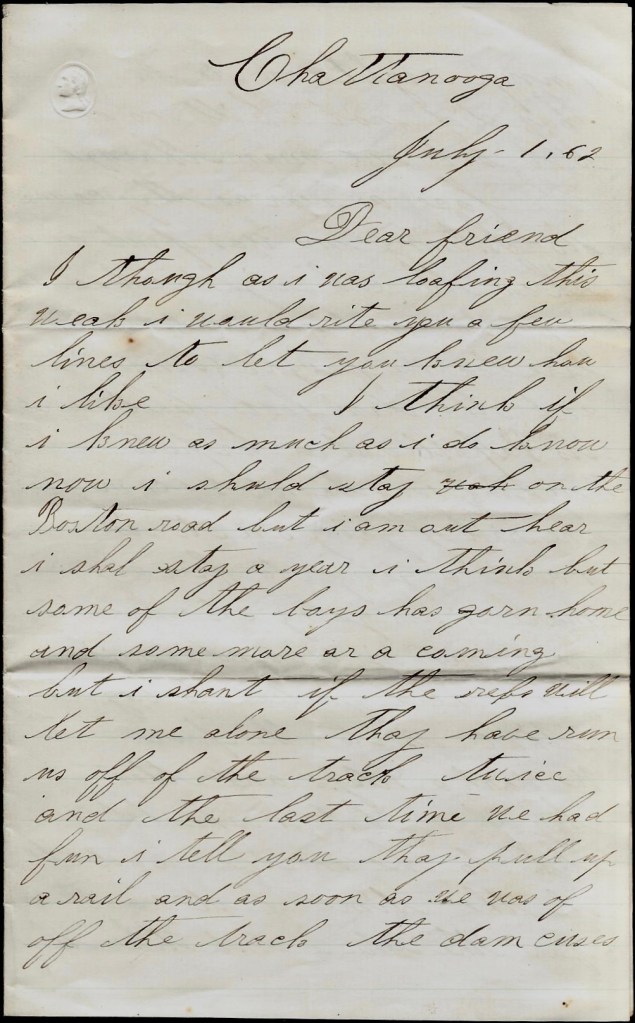 Chattanooga
July - 1. 62
Dear friend
I though as i was loafing this
weak i would rite you a few
lines to let you knew how
i like I think if
i knew as much as i do know
now i shuld stay on the
Boston road but i am out hear
i shal stay a year i think but
some of the boys has gorn home
and some more ar a coming
but i shant if the rebs will
let me alone thay have run
us off of the track twice
and the last time we had
fun i tell you thay pull up
a rail and as soon as we was of
off the track the dam cuses